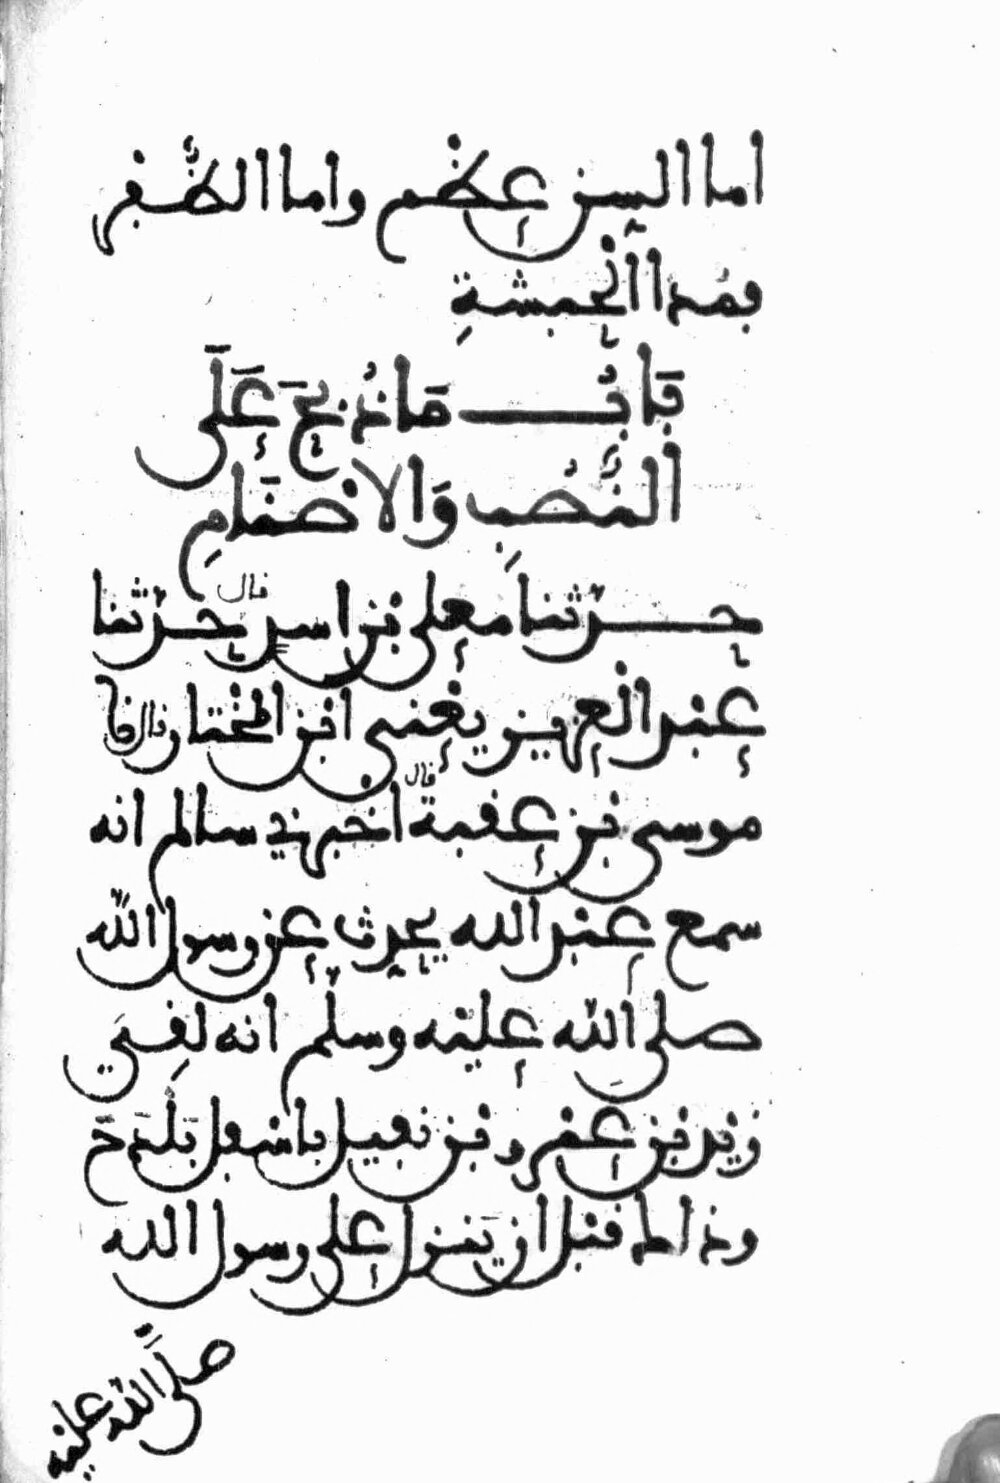 اما السن عظم واما الظفر
فمدا الحبشةِ
بَابُ مَا ذُبِحَ عَلَى
النُّصُبِ وَالاصْنَامِ
حدثنا معلى بن اسد قال حدثنا
عبد العزيز يعني ابن المختار قال نا
موسى بن عقبة قال اخبرني سالم انه
سمع عبد الله يحدث عن رسول الله
صلى الله عليه وسلم انه لقِيَ
زيد بن عمرو بن نفيل باسفل بَلْدَحَ
وذاك قبل ان ينزل على رسول الله
صلى الله عليه